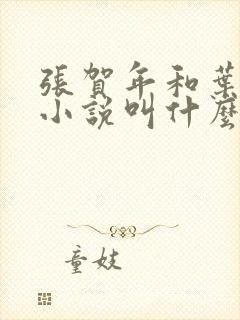 張賀年和葉
小說叫什麼
童妓